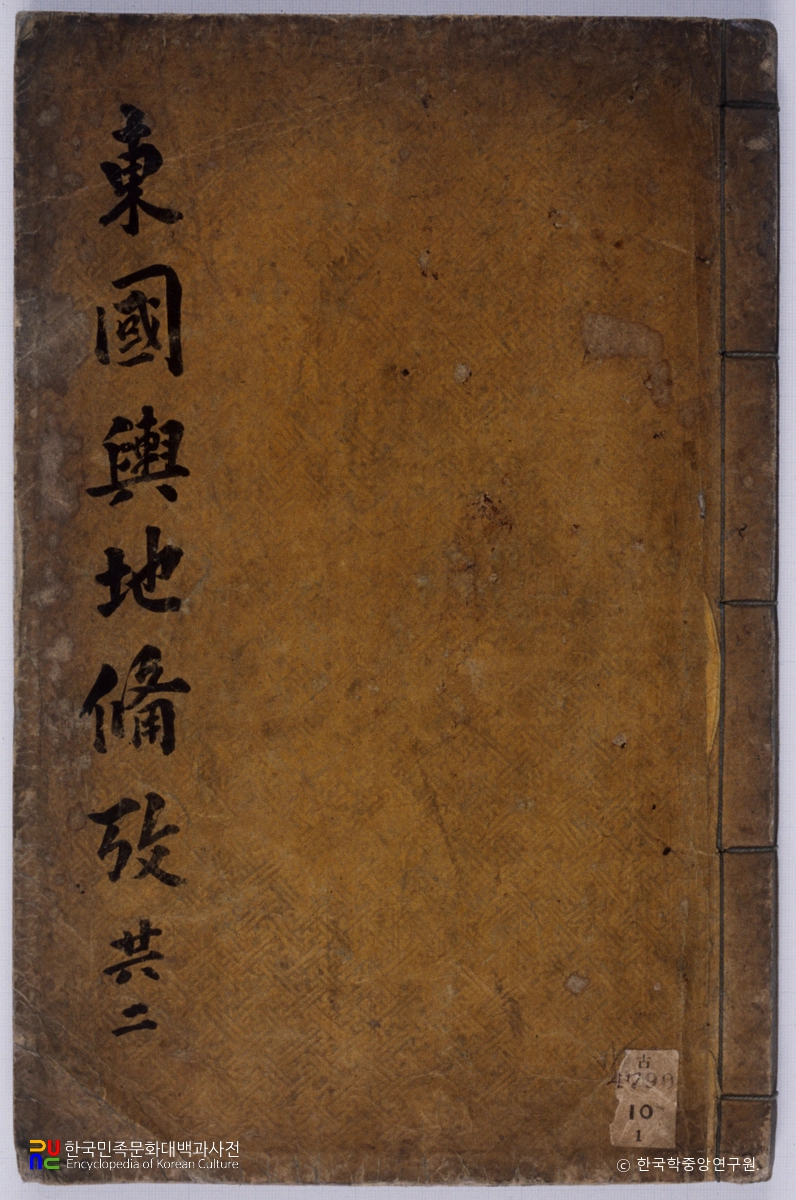 東國輿地備攷 共二
古
4790
10
1
한국민족문화대백과사전
Encyclopedia of Korean Culture
© 한국학중앙연구원.